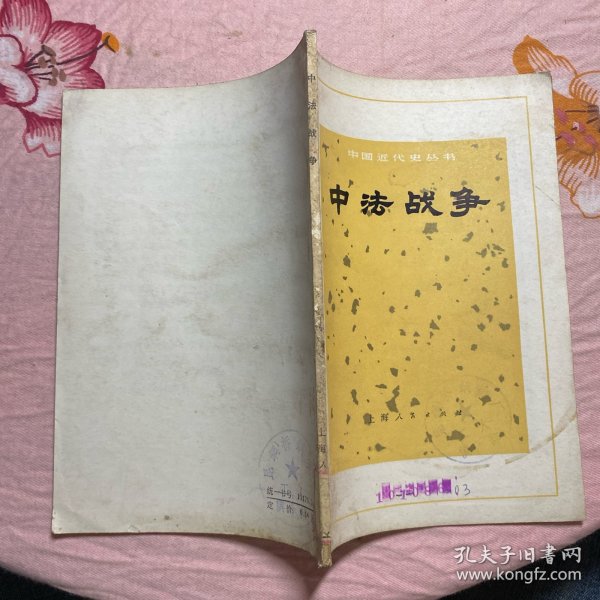 中国近代史丛书
中法战争
上海人民出版社
03
中法战争
上海人
统一书号
定价
孔夫子旧书网
www.kongfz.com